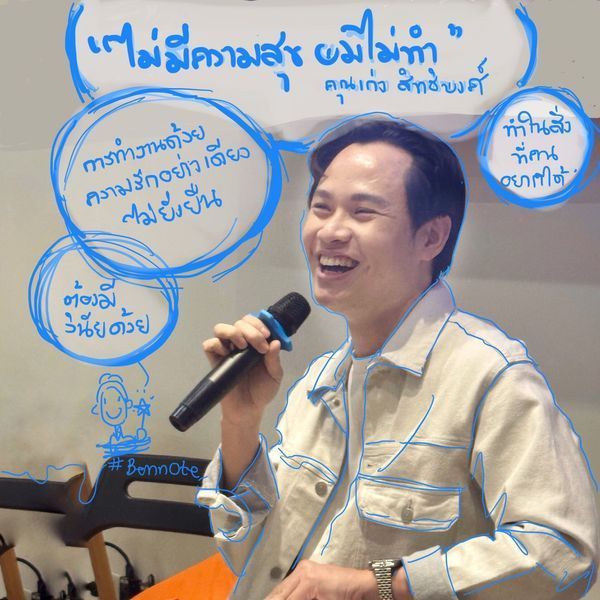 "ไม่มีความสุข ผมไม่ทำ"
คุณเก่ง สิทธิพงศ์
ทำในสิ่ง
ที่คน
อยากได้
การทำงานด้วย
ความรักอย่างเดียว
ไม่ยั่งยืน
ต้องมี
วินัยด้วย
#Bennote